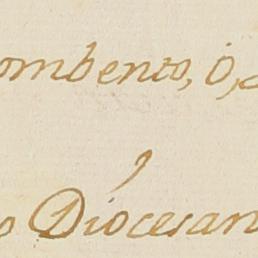 ombento, ó,
o Diócesan